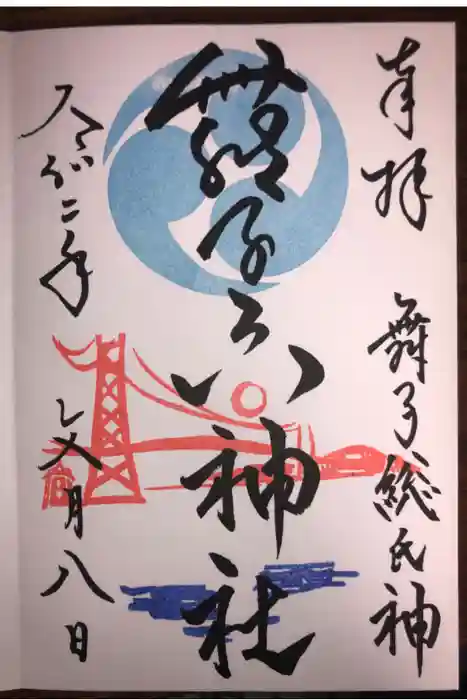 奉拝　舞子総氏神
舞子六神社
令和二年　文月八日